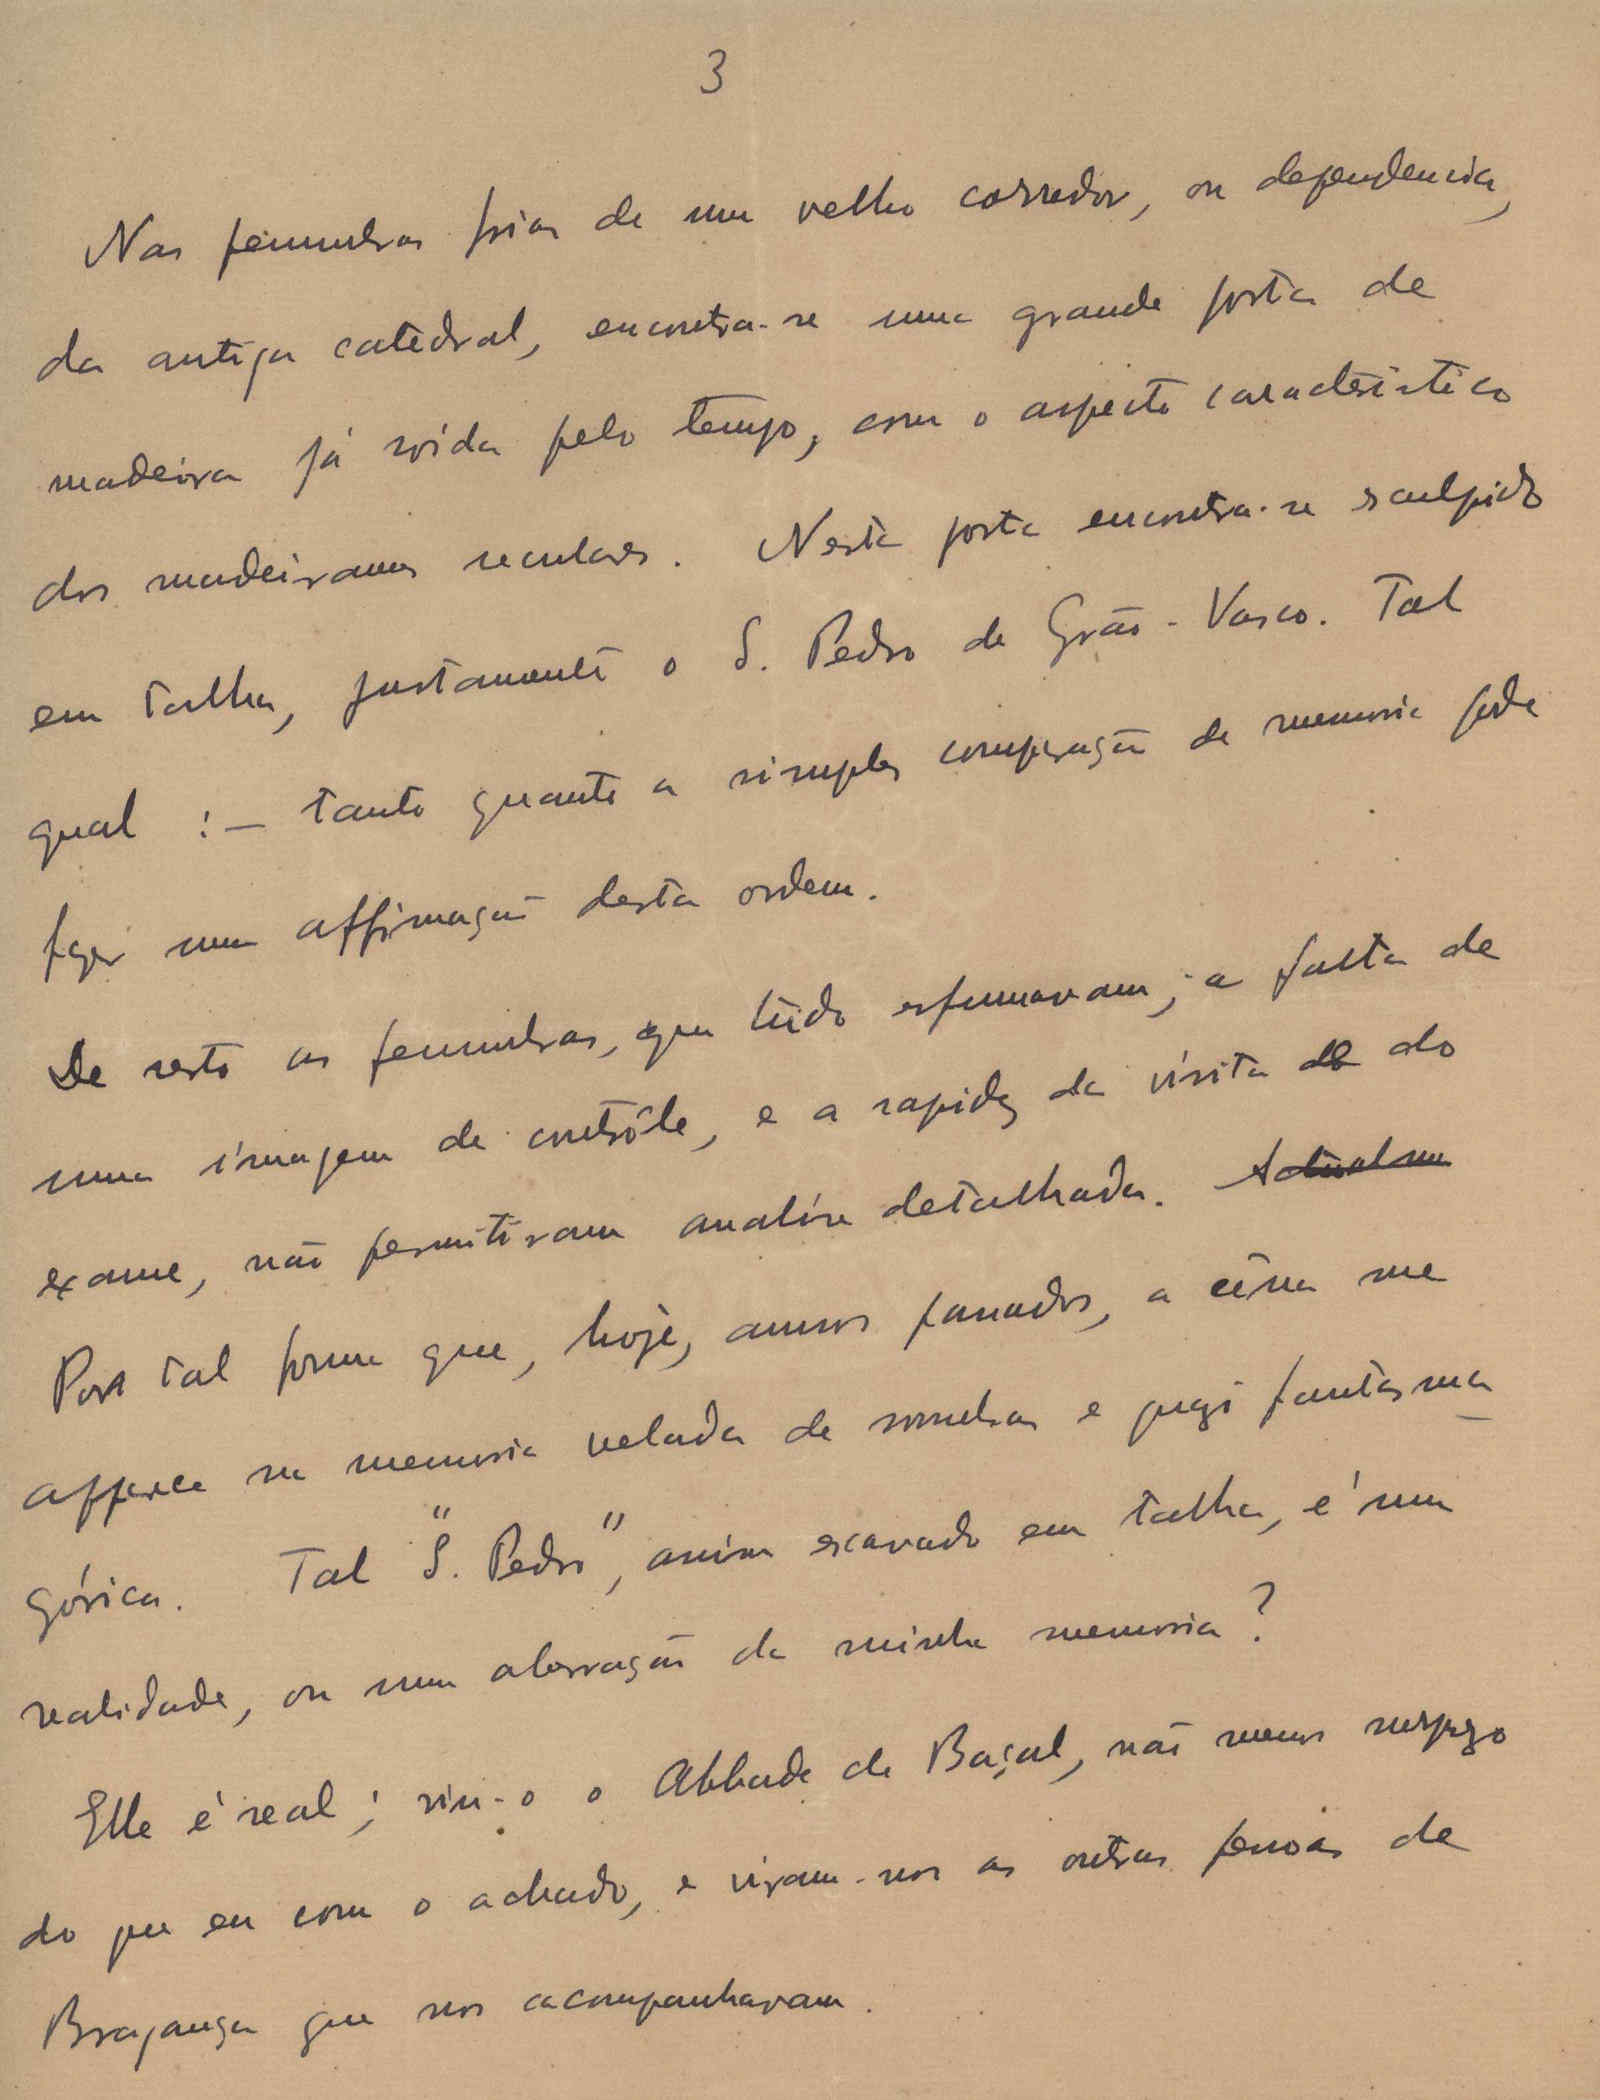 3
Nas penumbras frias de um velho corredor, ou dependencia,
da antiga catedral, encontra-se uma grande porta de
madeira já roída pelo tempo, com o aspecto caracteristico
dos madeiramos seculares. Nesta porta encontra-se esculpido
em talha, justamente o S. Pedro de Grão-Vasco. Tal
qual :— tanto quanto a simples comparação de memoria pode
fazer uma affirmação desta ordem.
De resto as penumbras, que tudo esfumavam; a falta de
uma imagem de contrôle, e a rapidez da visita e do
exame, não permitiram analise detalhada. Actualm
Por tal forma que, hoje, annos passados, a cêna me
apparece na memoria velada de sombras e quasi fantasma_
górica. Tal "S. Pedro", assim escavado em talha, é uma
realidade, ou uma aberração da minha memoria?
Elle é real; viu-o o Abbade de Baçal, não menos surpreso
do que eu com o achado, e viram-no as outras pessoas de
Bragança que nos acompanhavam.